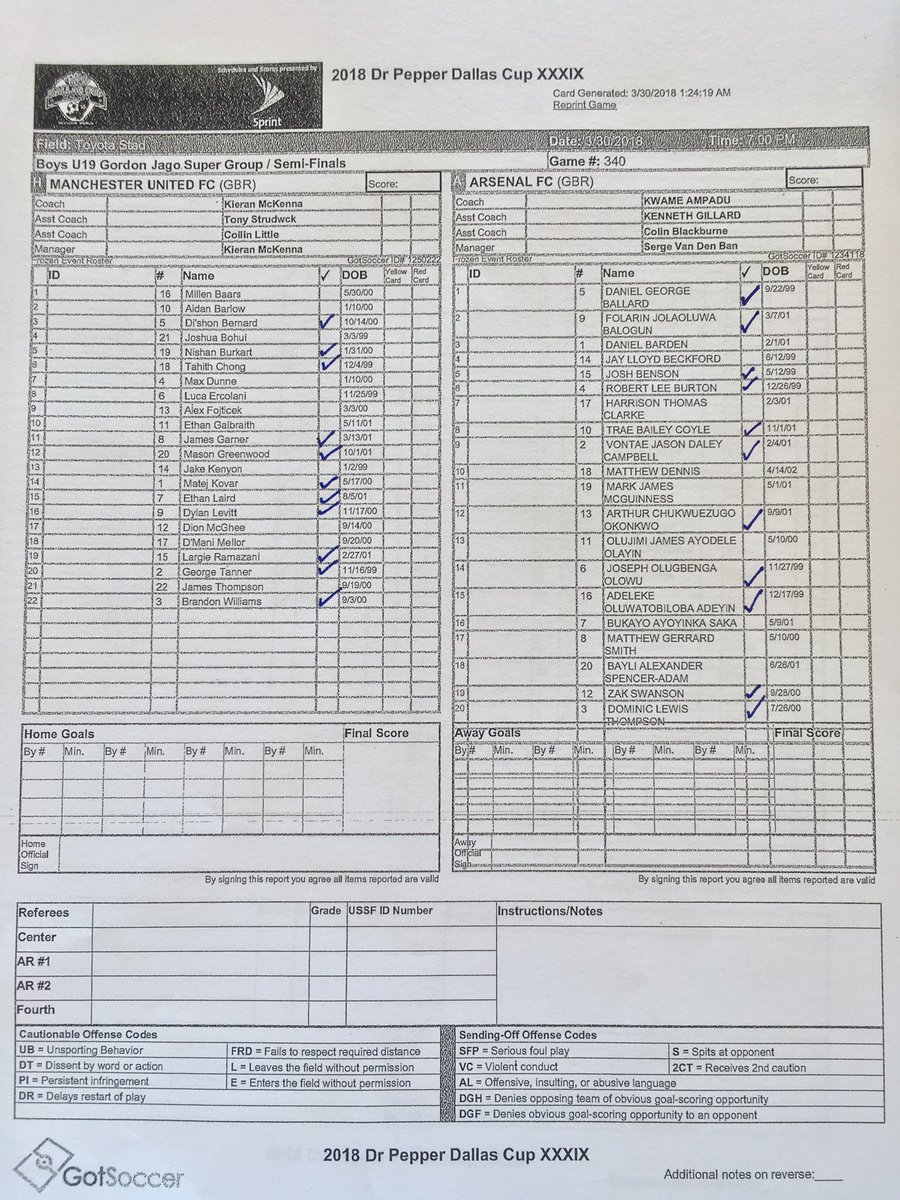 Schedules and Scores presented by
Sprint
2018 Dr Pepper Dallas Cup XXXIX
Card Generated: 3/30/2018 1:24:19 AM
Reprint Game
Field: Toyota Stad Date: 3/30/2018 Time: 7:00 PM
Boys U19 Gordon Jago Super Group / Semi-Finals Game #: 340
H MANCHESTER UNITED FC (GBR) Score:
Coach Kieran McKenna
Asst Coach Tony Strudwck
Asst Coach Collin Little
Manager Kieran McKenna
Frozen Event Roster GotSoccer ID# 1250222
ID # Name ✓ DOB Yellow Card Red Card
1 16 Millen Baars 5/30/00
2 10 Aidan Barlow 1/10/00
3 5 Di'shon Bernard ✓ 10/14/00
4 21 Joshua Bohui 3/3/99
5 19 Nishan Burkart ✓ 1/31/00
6 18 Tahith Chong ✓ 12/4/99
7 4 Max Dunne 1/10/00
8 6 Luca Ercolani 11/25/99
9 13 Alex Fojticek 3/3/00
10 11 Ethan Galbraith 5/11/01
11 8 James Garner ✓ 3/13/01
12 20 Mason Greenwood ✓ 10/1/01
13 14 Jake Kenyon 1/2/99
14 1 Matej Kovar ✓ 5/17/00
15 7 Ethan Laird ✓ 8/5/01
16 9 Dylan Levitt ✓ 11/17/00
17 12 Dion McGhee 9/14/00
18 17 D'Mani Mellor 9/20/00
19 15 Largie Ramazani ✓ 2/27/01
20 2 George Tanner ✓ 11/16/99
21 22 James Thompson 9/19/00
22 3 Brandon Williams ✓ 9/3/00
A ARSENAL FC (GBR) Score:
Coach KWAME AMPADU
Asst Coach KENNETH GILLARD
Asst Coach Colin Blackburne
Manager Serge Van Den Ban
Frozen Event Roster GotSoccer ID# 1234118
ID # Name ✓ DOB Yellow Card Red Card
1 5 DANIEL GEORGE ✓ 9/22/99
BALLARD
2 9 FOLARIN JOLAOLUWA ✓ 3/7/01
BALOGUN
3 1 DANIEL BARDEN 2/1/01
4 14 JAY LLOYD BECKFORD 6/12/99
5 15 JOSH BENSON ✓ 5/12/99
6 4 ROBERT LEE BURTON ✓ 12/26/99
7 17 HARRISON THOMAS 2/3/01
CLARKE
8 10 TRAE BAILEY COYLE ✓ 11/1/01
9 2 VONTAE JASON DALEY ✓ 2/4/01
CAMPBELL
10 18 MATTHEW DENNIS 4/14/02
11 19 MARK JAMES 5/1/01
MCGUINNESS
12 13 ARTHUR CHUKWUEZUGO ✓ 9/9/01
OKONKWO
13 11 OLUJIMI JAMES AYODELE 5/10/00
OLAYIN
14 6 JOSEPH OLUGBENGA ✓ 11/27/99
OLOWU
15 16 ADELEKE ✓ 12/17/99
OLUWATOBILOBA ADEYIN
16 7 BUKAYO AYOYINKA SAKA 5/9/01
17 8 MATTHEW GERRARD 5/10/00
SMITH
18 20 BAYLI ALEXANDER 6/26/01
SPENCER-ADAM
19 12 ZAK SWANSON ✓ 9/28/00
20 3 DOMINIC LEWIS ✓ 7/26/00
THOMPSON
Home Goals Final Score
By # Min. By # Min. By # Min. By # Min.
Home
Official
Sign
By signing this report you agree all items reported are valid
Away Goals Final Score
By # Min. By # Min. By # Min. By # Min.
Away
Official
Sign
By signing this report you agree all items reported are valid
Referees Grade USSF ID Number Instructions/Notes
Center
AR #1
AR #2
Fourth
Cautionable Offense Codes
UB = Unsporting Behavior FRD = Fails to respect required distance
DT = Dissent by word or action L = Leaves the field without permission
PI = Persistent infringement E = Enters the field without permission
DR = Delays restart of play
Sending-Off Offense Codes
SFP = Serious foul play S = Spits at opponent
VC = Violent conduct 2CT = Receives 2nd caution
AL = Offensive, insulting, or abusive language
DGH = Denies opposing team of obvious goal-scoring opportunity
DGF = Denies obvious goal-scoring opportunity to an opponent
GotSoccer
2018 Dr Pepper Dallas Cup XXXIX
Additional notes on reverse:____